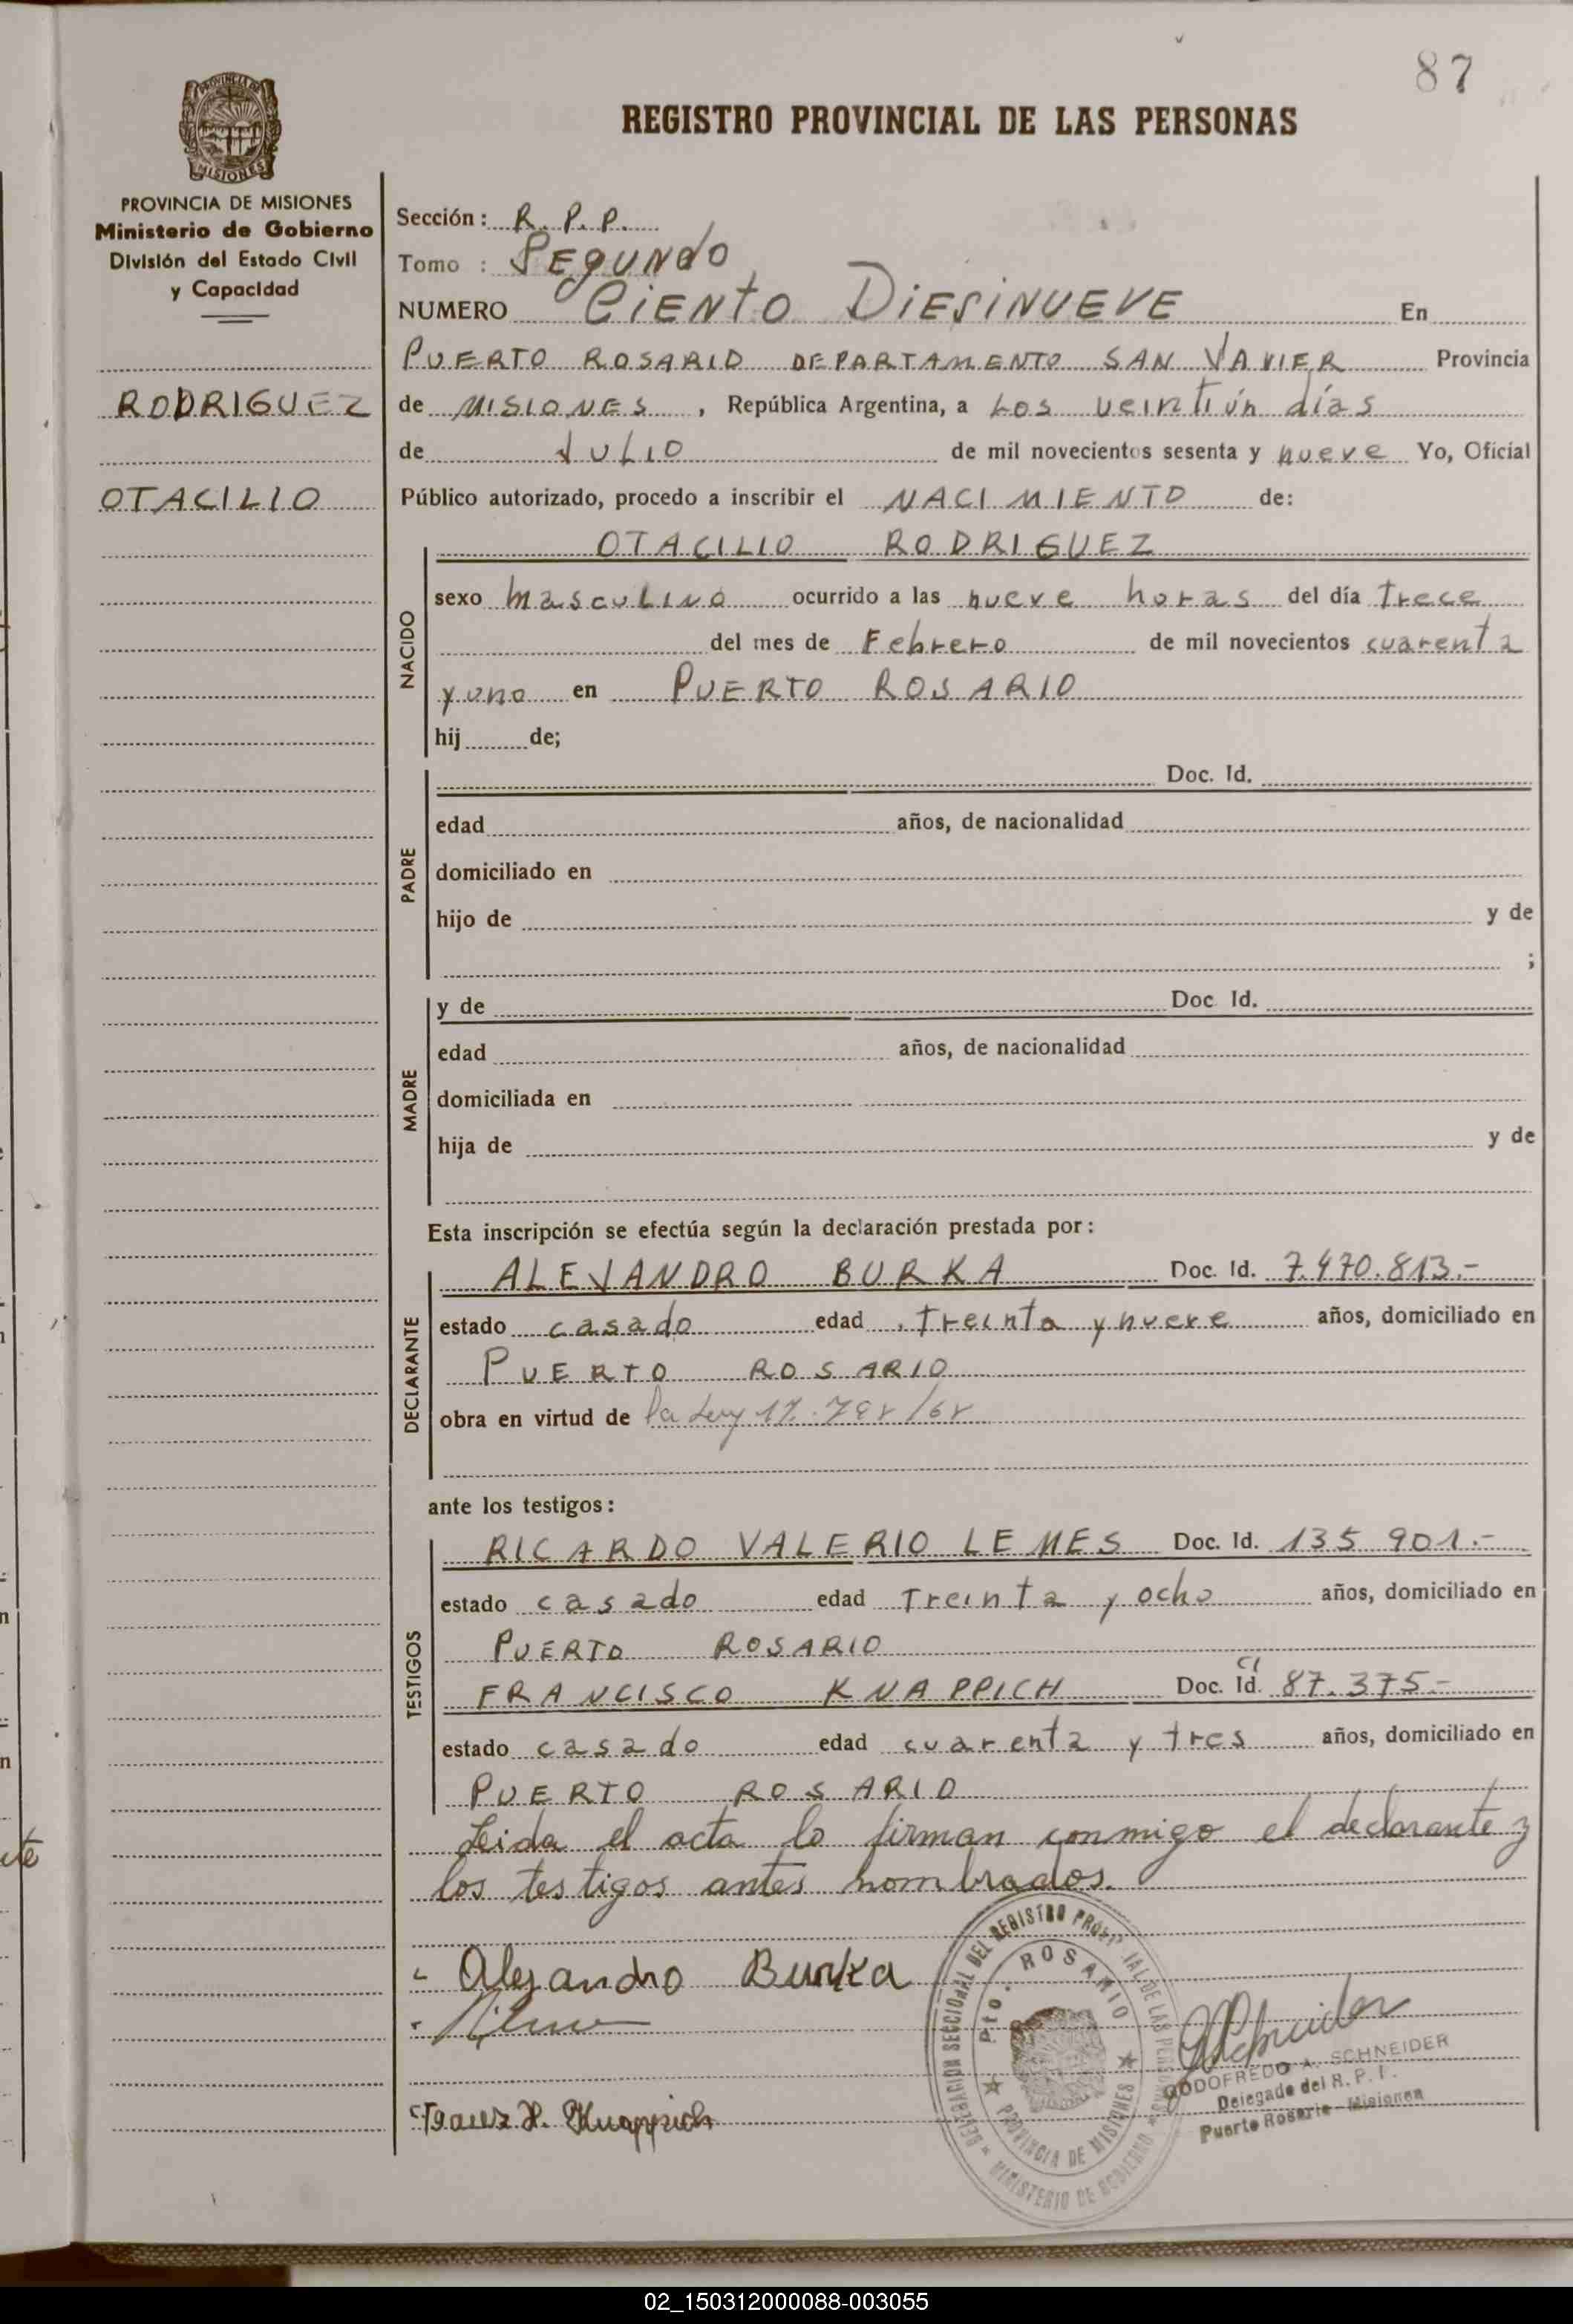 87
REGISTRO PROVINCIAL DE LAS PERSONAS
PROVINCIA DE MISIONES
PROVINCIA DE MISIONES
Ministerio de Gobierno
División del Estado Civil
y Capacidad
RODRIGUEZ
OTACILIO
Sección: R. P. P.
Tomo : SEGUNDO
NUMERO CIENTO DIESINUEVE En
PUERTO ROSARIO DEPARTAMENTO SAN JAVIER Provincia
de MISIONES, República Argentina, a Los veintiún días
de JULIO de mil novecientos sesenta y nueve Yo, Oficial
Público autorizado, procedo a inscribir el NACIMIENTO de:
NACIDO
OTACILIO RODRIGUEZ
sexo masculino ocurrido a las nueve horas del día Trece
del mes de Febrero de mil novecientos cuarenta
y uno en PUERTO ROSARIO
hij de;
PADRE
Doc. Id.
edad años, de nacionalidad
domiciliado en
hijo de y de
;
MADRE
y de Doc. Id.
edad años, de nacionalidad
domiciliada en
hija de y de
Esta inscripción se efectúa según la declaración prestada por:
DECLARANTE
ALEJANDRO BURKA Doc. Id. 7.470.813.-
estado casado edad treinta y nueve años, domiciliado en
PUERTO ROSARIO
obra en virtud de la Ley 17.
ante los testigos:
TESTIGOS
RICARDO VALERIO LEMES Doc. Id. 135 901.-
estado casado edad Treinta y ocho años, domiciliado en
PUERTO ROSARIO
FRANCISCO KNAPPICH Doc. Id. CI 87.375-
estado casado edad cuarenta y tres años, domiciliado en
PUERTO ROSARIO
Leida el acta lo firman conmigo el declarante y
los testigos antes nombrados.
Alejandro Burka
Franz X. Knappich
DELEGACION SECCIONAL DEL REGISTRO PROVINCIAL DE LAS PERSONAS
MINISTERIO DE GOBIERNO
Pto. ROSARIO
PROVINCIA DE MISIONES
Schneider
GODOFREDO A. SCHNEIDER
Delegado del R. P. P.
Puerto Rosario - Misiones
02_150312000088-003055